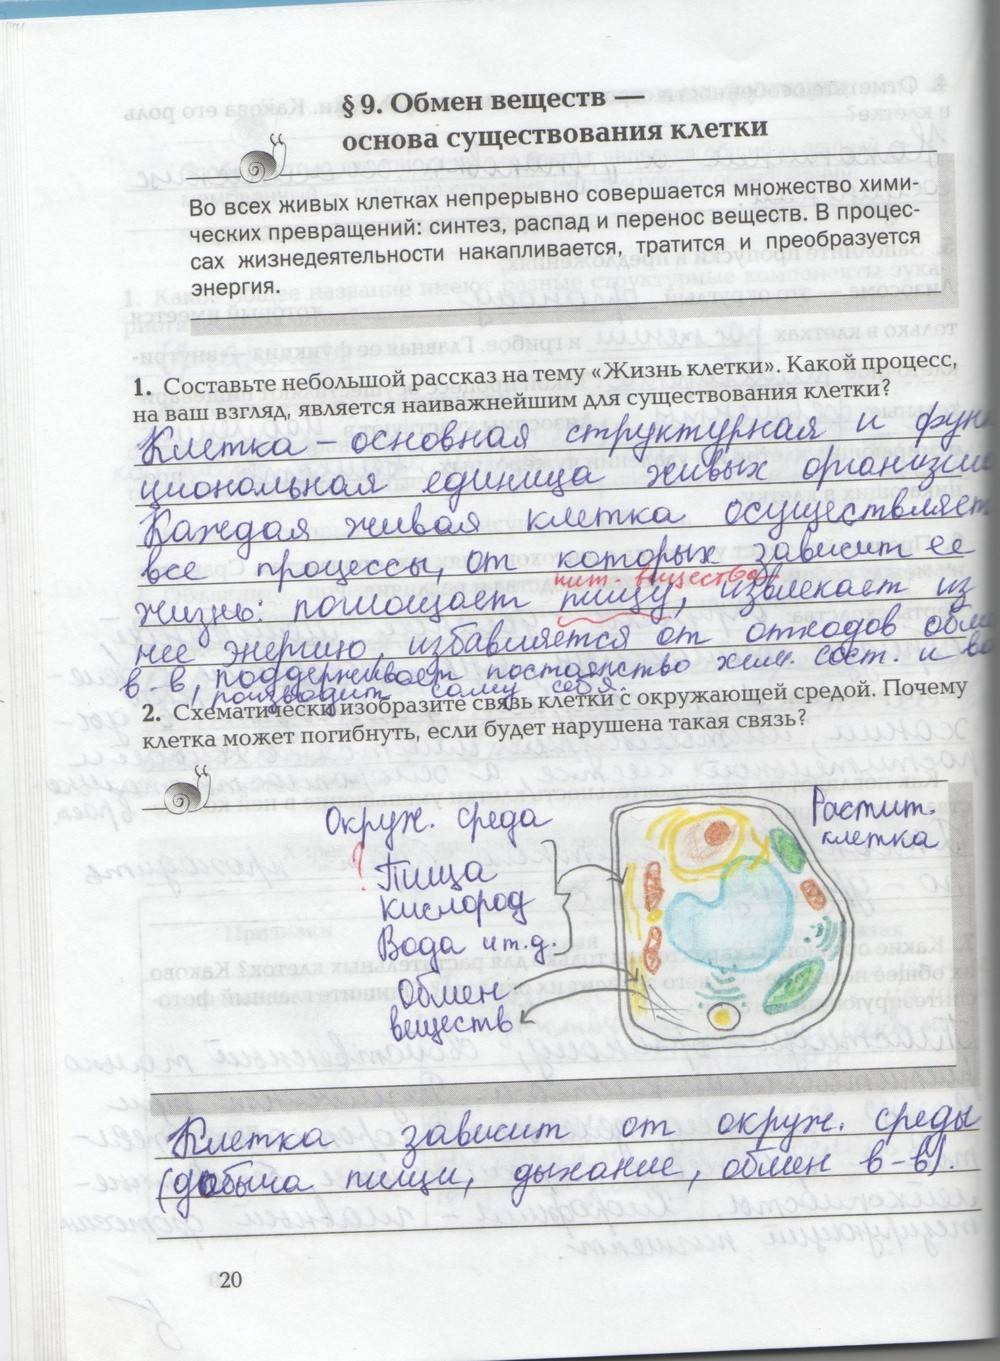 § 9. Обмен веществ —
основа существования клетки
Во всех живых клетках непрерывно совершается множество хими-
ческих превращений: синтез, распад и перенос веществ. В процес-
сах жизнедеятельности накапливается, тратится и преобразуется
энергия.
1. Составьте небольшой рассказ на тему «Жизнь клетки». Какой процесс,
на ваш взгляд, является наиважнейшим для существования клетки?
Клетка – основная структурная и функ
циональная единица живых организмо
Каждая живая клетка осуществляет
все процессы, от которых зависит ее
пит. вещества
жизнь: поглощает пищу, извлекает из
нее энергию, избавляется от отходов обме
в-в, поддерживает постоянство хим. сост. и во
производит саму себя.
2. Схематически изобразите связь клетки с окружающей средой. Почему
клетка может погибнуть, если будет нарушена такая связь?
Окруж. среда
Растит.
клетка
? Пища
кислород
Вода и т.д.
Обмен
веществ
Клетка зависит от окруж. среды
(добыча пищи, дыхание, обмен в-в).
20